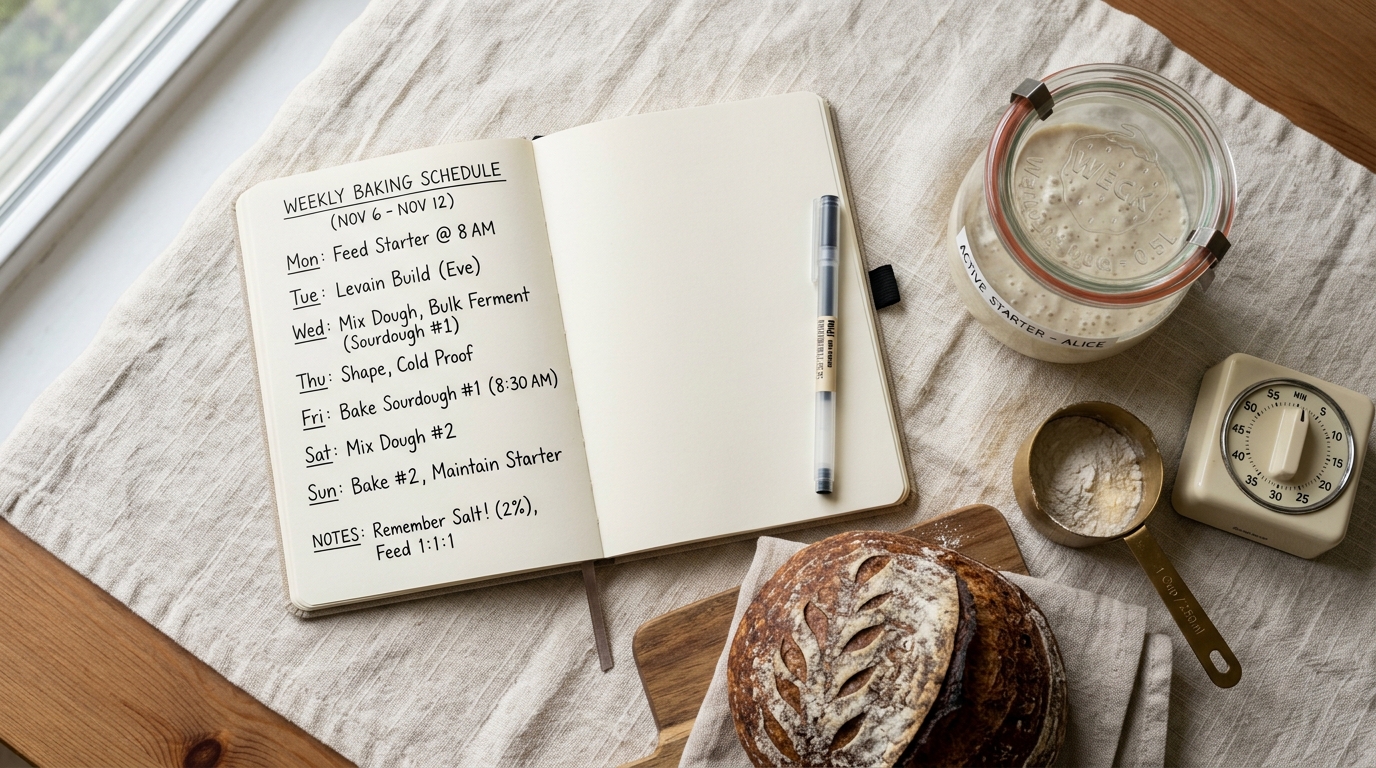 WEEKLY BAKING SCHEDULE
(NOV 6 - NOV 12)
Mon: Feed Starter @ 8 AM
Tue: Levain Build (Eve)
Wed: Mix Dough, Bulk Ferment
(Sourdough #1)
Thu: Shape, Cold Proof
Fri: Bake Sourdough #1 (8:30 AM)
Sat: Mix Dough #2
Sun: Bake #2, Maintain Starter
NOTES: Remember Salt! (2%),
Feed 1:1:1
WECK
0.5L
ACTIVE STARTER - ALICE
MIN
5
10
15
20
25
30
35
40
45
50
55
1 Cup / 250ml